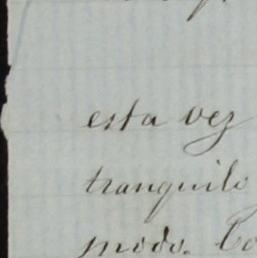 esta vez
tranquilo
modo. Co